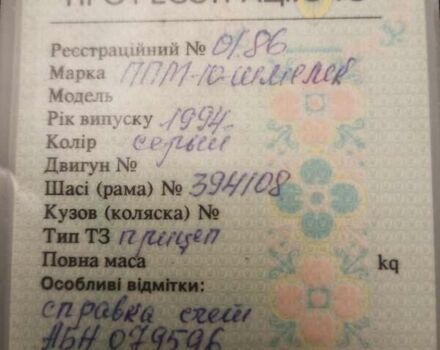 ПРО РЕЄСТРАЦІЮ ТЗ
Реєстраційний № 0186
Марка ППМ-Ю-
Модель
Рік випуску 1994
Колір серый
Двигун №
Шасі (рама) № 394108
Кузов (коляска) №
Тип ТЗ прицеп
Повна маса kg
Особливі відмітки:
справка счет
АБН 079596